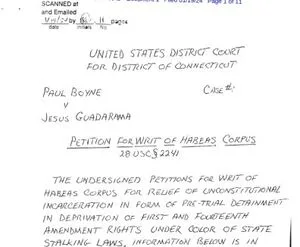 SCANNED at
and Emailed
pages
date initials No.
Page 1 of 11
UNITED STATES DISTRICT COURT
FOR DISTRICT OF CONNECTICUT
PAUL BOYNE CASE #:
V
JESUS GUADARAMA
PETITION FOR WRIT OF HABEAS CORPUS
28 USC § 2241
THE UNDERSIGNED PETITIONS FOR WRIT OF
HABEAS CORPUS FOR RELIEF OF UNCONSTITUTIONAL
INCARCERATION IN FORM OF PRE-TRIAL DETAINMENT
IN DEPRIVATION OF FIRST AND FOURTEENTH
AMENDMENT RIGHTS UNDER COLOR OF STATE
STALKING LAWS. INFORMATION BELOW IS IN